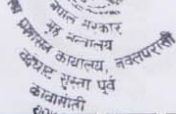 नेपाल सरकार
गृह मन्त्रालय
प्रशासन कार्यालय, नवलपरासी
बर्दघाट सुस्ता पूर्व
कावासोती